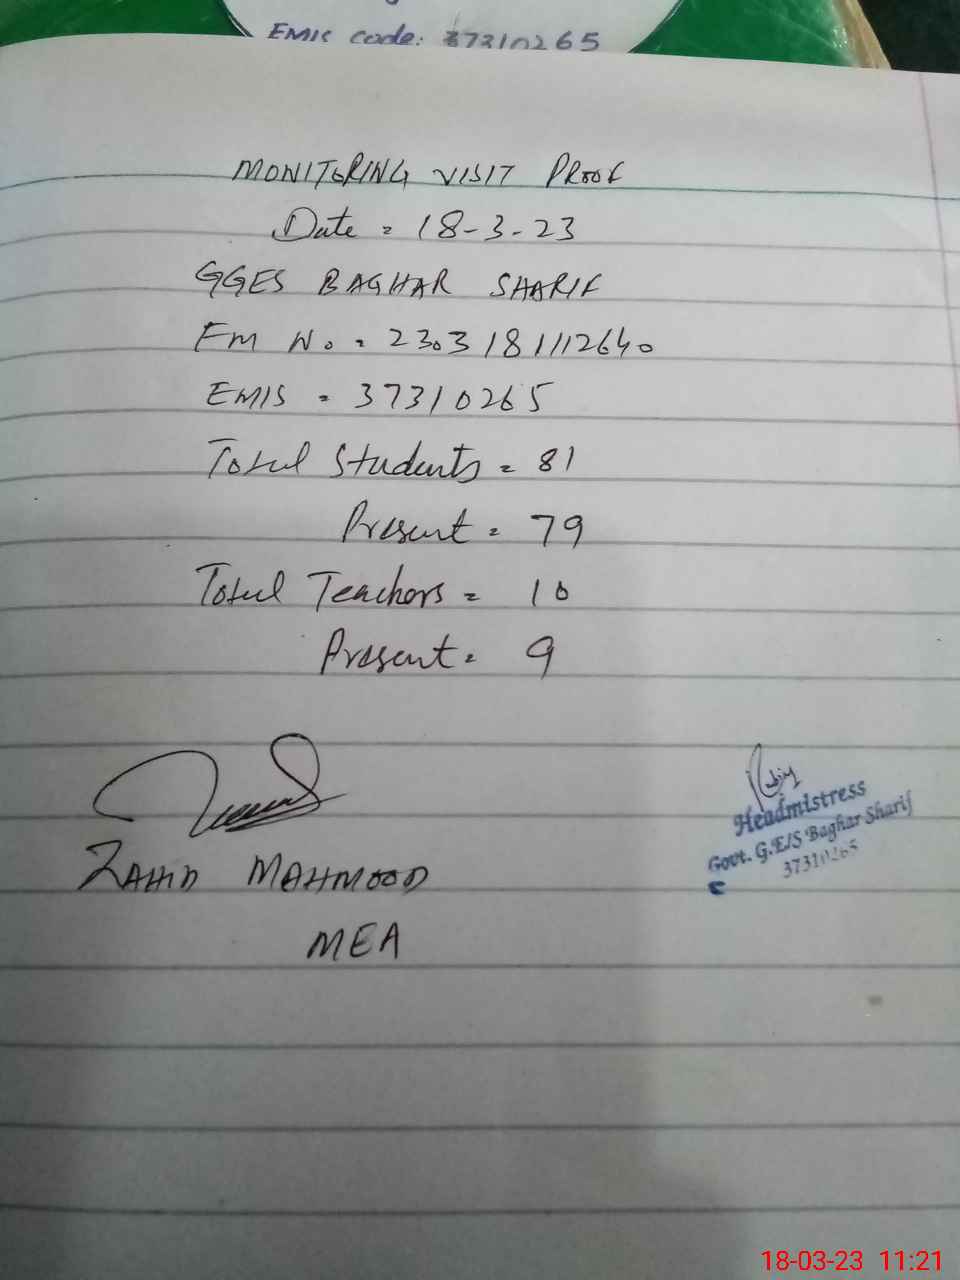 EMIS code: 37310265
MONITORING VISIT PROOF
Date = 18-3-23
GGES BAGHAR SHARIF
FM No. = 2303181112640
EMIS = 37310265
Total Students = 81
Present = 79
Total Teachers = 10
Present = 9
ZAHID MAHMOOD
MEA
Headmistress
Govt. G.E/S Baghar Sharif
37310265
18-03-23 11:21